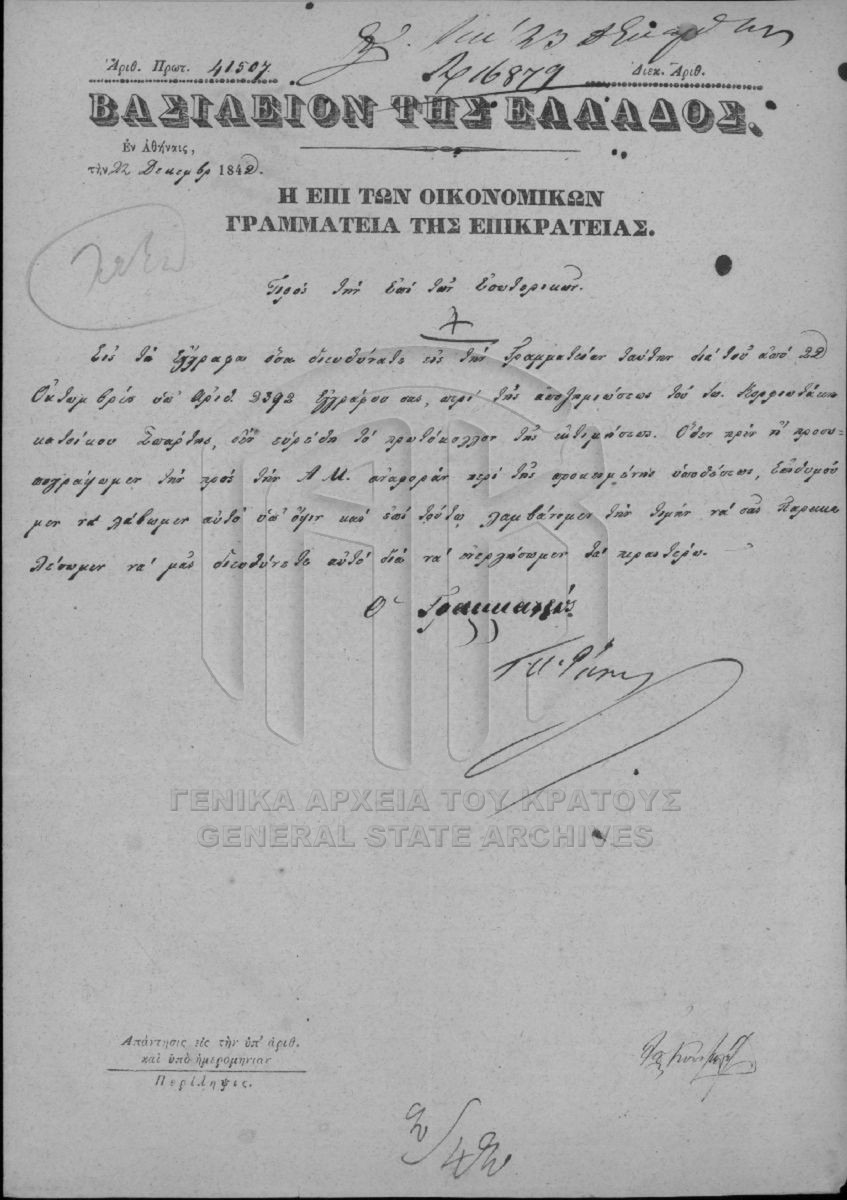 23 Δεκεμβρίου
Ἀριθ. Πρωτ. 41507 16879 Διεκ. Ἀριθ.
ΒΑΣΙΛΕΙΟΝ ΤΗΣ ΕΛΛΑΔΟΣ.
Ἐν Ἀθήναις,
τὴν 22 Δεκεμβρ 1842.
Η ΕΠΙ ΤΩΝ ΟΙΚΟΝΟΜΙΚΩΝ
ΓΡΑΜΜΑΤΕΙΑ ΤΗΣ ΕΠΙΚΡΑΤΕΙΑΣ.
Πρὸς τὴν ἐπὶ τῶν Ἐσωτερικῶν.
Εἰς τὰ ἔγγραφα ὅσα διευθύνατε εἰς τὴν Γραμματείαν ταύτην διὰ τοῦ ἀπὸ 22
Ὀκτωμβρίου ὑπ' ἀριθ. 2392 ἐγγράφου σας, περὶ τῆς ἀποζημιώσεως τοῦ
κατοίκου Σπάρτης, δὲν εὑρέθη τὸ πρωτόκολλον τῆς ἐκτιμήσεως. Ὅθεν πρὶν ἢ προσυ
πογράψωμεν τὴν πρὸς τὴν Α.Μ. ἀναφορὰν περὶ τῆς προκειμένης ὑποθέσεως, ἐπιθυμοῦ
μεν νὰ λάβωμεν αὐτὸ ὑπ' ὄψιν καὶ ἐπὶ τούτῳ λαμβάνομεν τὴν τιμὴν νὰ σᾶς παρακα
λέσωμεν νὰ μᾶς διευθύνετε αὐτὸ διὰ νὰ ἐνεργήσωμεν τὰ περαιτέρω.
Ὁ Γραμματεὺς
ΓΕΝΙΚΑ ΑΡΧΕΙΑ ΤΟΥ ΚΡΑΤΟΥΣ
GENERAL STATE ARCHIVES
Ἀπάντησις εἰς τὴν ὑπ' ἀριθ.
καὶ ὑπὸ ἡμερομηνίαν
Περίληψις.